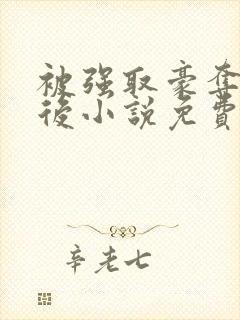 被强取豪奪
後小說免費
辛老七